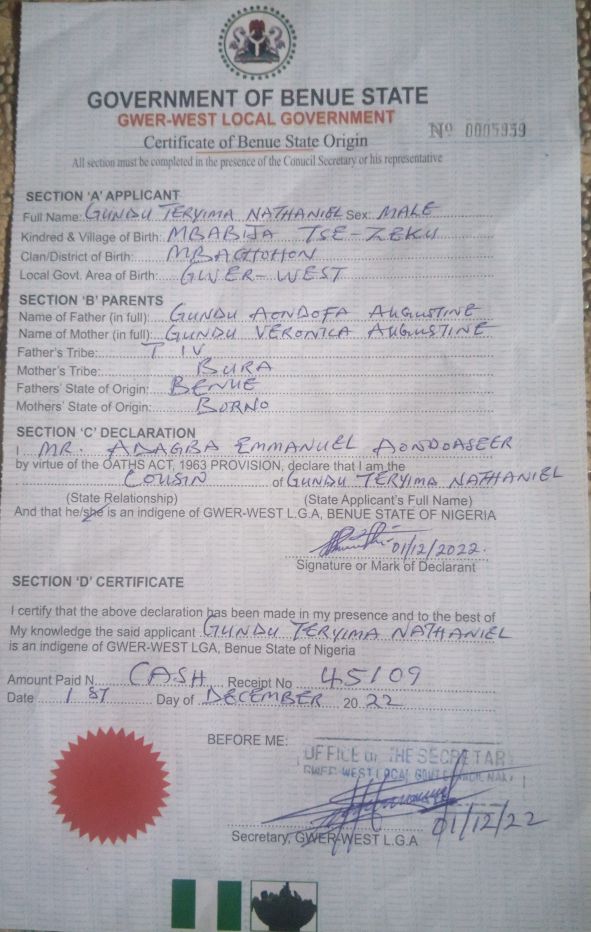 GOVERNMENT OF BENUE STATE
GWER-WEST LOCAL GOVERNMENT
Certificate of Benue State Origin
Nº 0005959
All section must be completed in the presence of the Conucil Secretary or his representative
SECTION 'A' APPLICANT
Full Name: GUNDU TERYIMA NATHANIEL Sex: MALE
Kindred & Village of Birth: MBABIJA TSE-ZEKU
Clan/District of Birth: MBAGHOHON
Local Govt. Area of Birth: GWER-WEST
SECTION 'B' PARENTS
Name of Father (in full): GUNDU AONDOFA AUGUSTINE
Name of Mother (in full): GUNDU VERONICA AUGUSTINE
Father's Tribe: TIV
Mother's Tribe: BURA
Fathers' State of Origin: BENUE
Mothers' State of Origin: BORNO
SECTION 'C' DECLARATION
I MR. ADAGBA EMMANUEL AONDOASEER
by virtue of the OATHS ACT, 1963 PROVISION, declare that I am the
COUSIN of GUNDU TERYIMA NATHANIEL
(State Relationship) (State Applicant's Full Name)
And that he/she is an indigene of GWER-WEST L.G.A, BENUE STATE OF NIGERIA
01/12/2022.
Signature or Mark of Declarant
SECTION 'D' CERTIFICATE
I certify that the above declaration has been made in my presence and to the best of
My knowledge the said applicant GUNDU TERYIMA NATHANIEL
is an indigene of GWER-WEST LGA, Benue State of Nigeria
Amount Paid N CASH Receipt No 45109
Date 1ST Day of DECEMBER 20 22
BEFORE ME:
OFFICE OF THE SECRETARY
GWER-WEST LOCAL GOVT
01/12/22
Secretary, GWER-WEST L.G.A